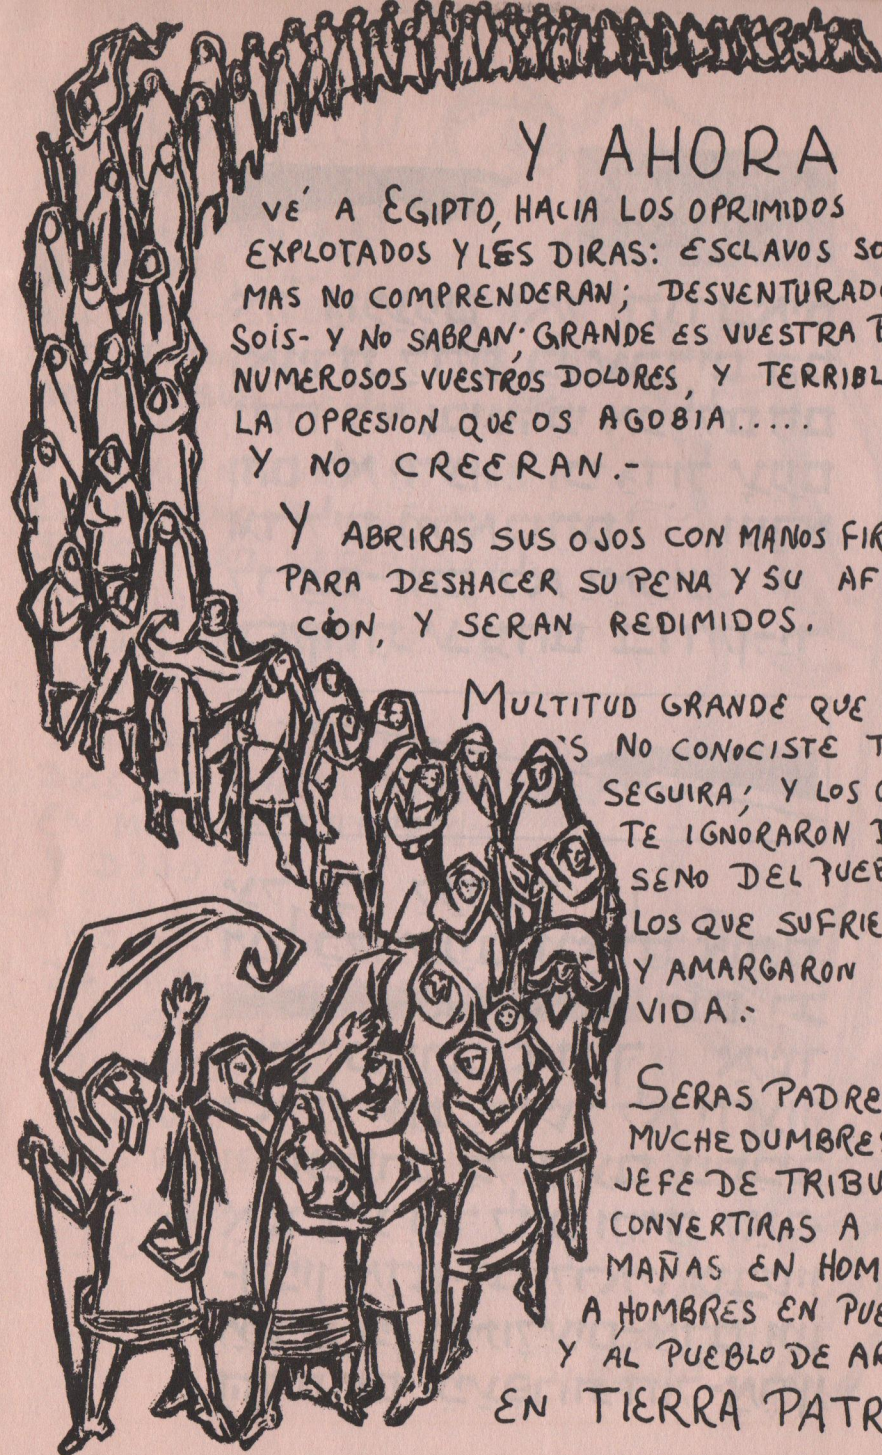 Y AHORA
VÉ A EGIPTO, HACIA LOS OPRIMIDOS
EXPLOTADOS Y LES DIRAS: ESCLAVOS SO
MAS NO COMPRENDERAN; DESVENTURADO
SOIS- Y NO SABRAN; GRANDE ES VUESTRA P
NUMEROSOS VUESTROS DOLORES, Y TERRIBL
LA OPRESION QUE OS AGOBIA.....
Y NO CREERAN.-
Y ABRIRAS SUS OJOS CON MANOS FIR
PARA DESHACER SU PENA Y SU AF
CION, Y SERAN REDIMIDOS.
MULTITUD GRANDE QUE
S NO CONOCISTE T
SEGUIRA; Y LOS
TE IGNORARON D
SENO DEL PUEB
LOS QUE SUFRIE
Y AMARGARON
VIDA.-
SERAS PADRE
MUCHEDUMBRES
JEFE DE TRIBU
CONVERTIRAS A
MAÑAS EN HOM
A HOMBRES EN PUE
Y AL PUEBLO DE AR
EN TIERRA PATR